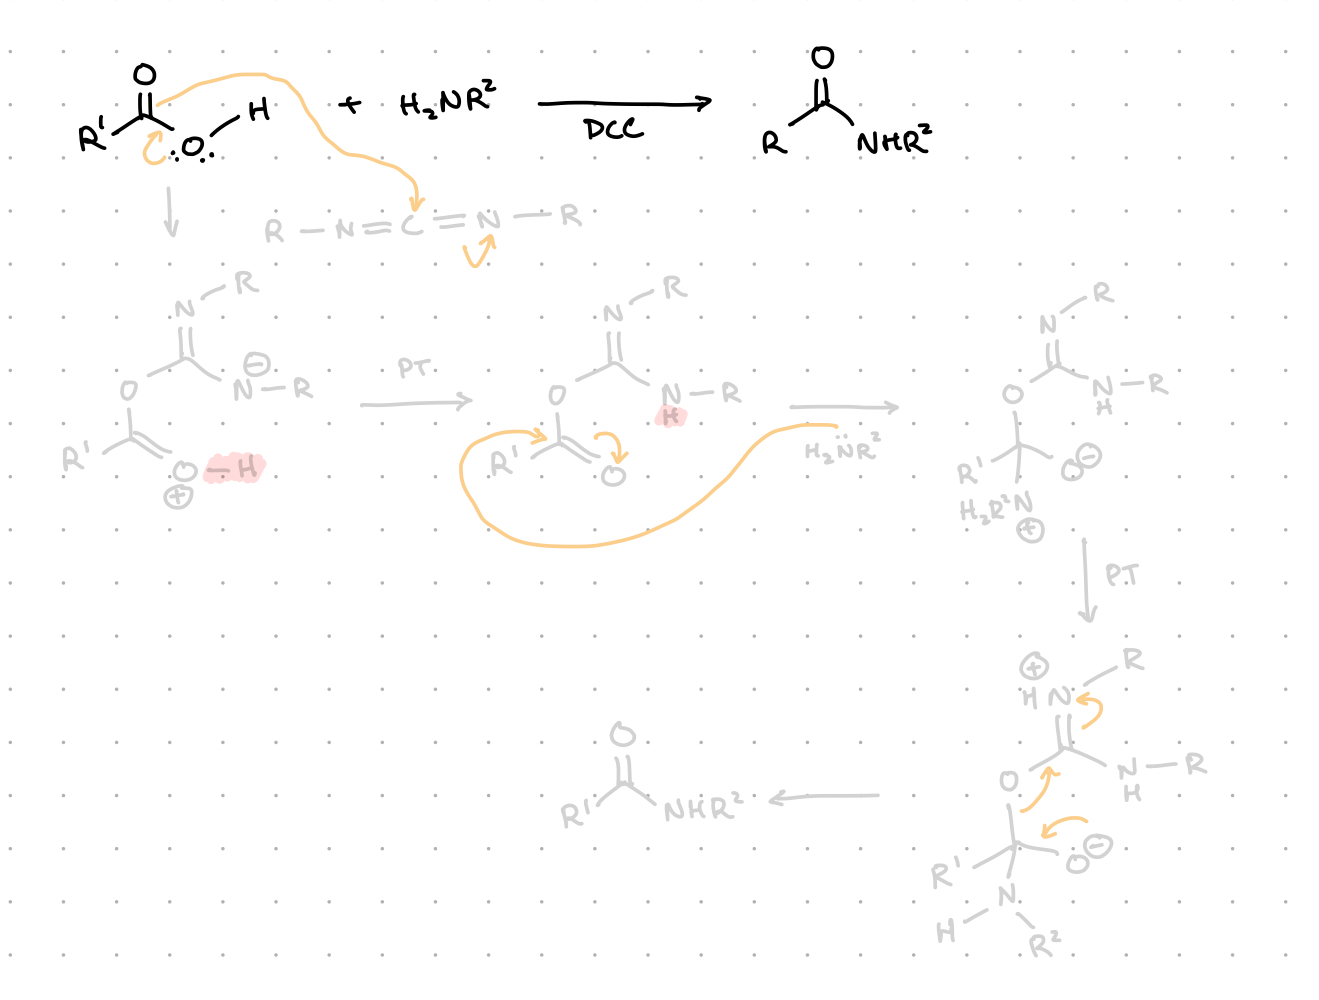 O
R' O H + H₂NR² DCC O R NHR²
R — N = C = N — R
N R
O N ⊖ R
R' O ⊕ H
PT
N R
O N R
H
R' O
H₂NR²
N R
O N R
H
R' O ⊖
H₂R²N
⊕
PT
⊕
H N R
O N R
H
R' O ⊖
N
H R²
O
R' NHR²